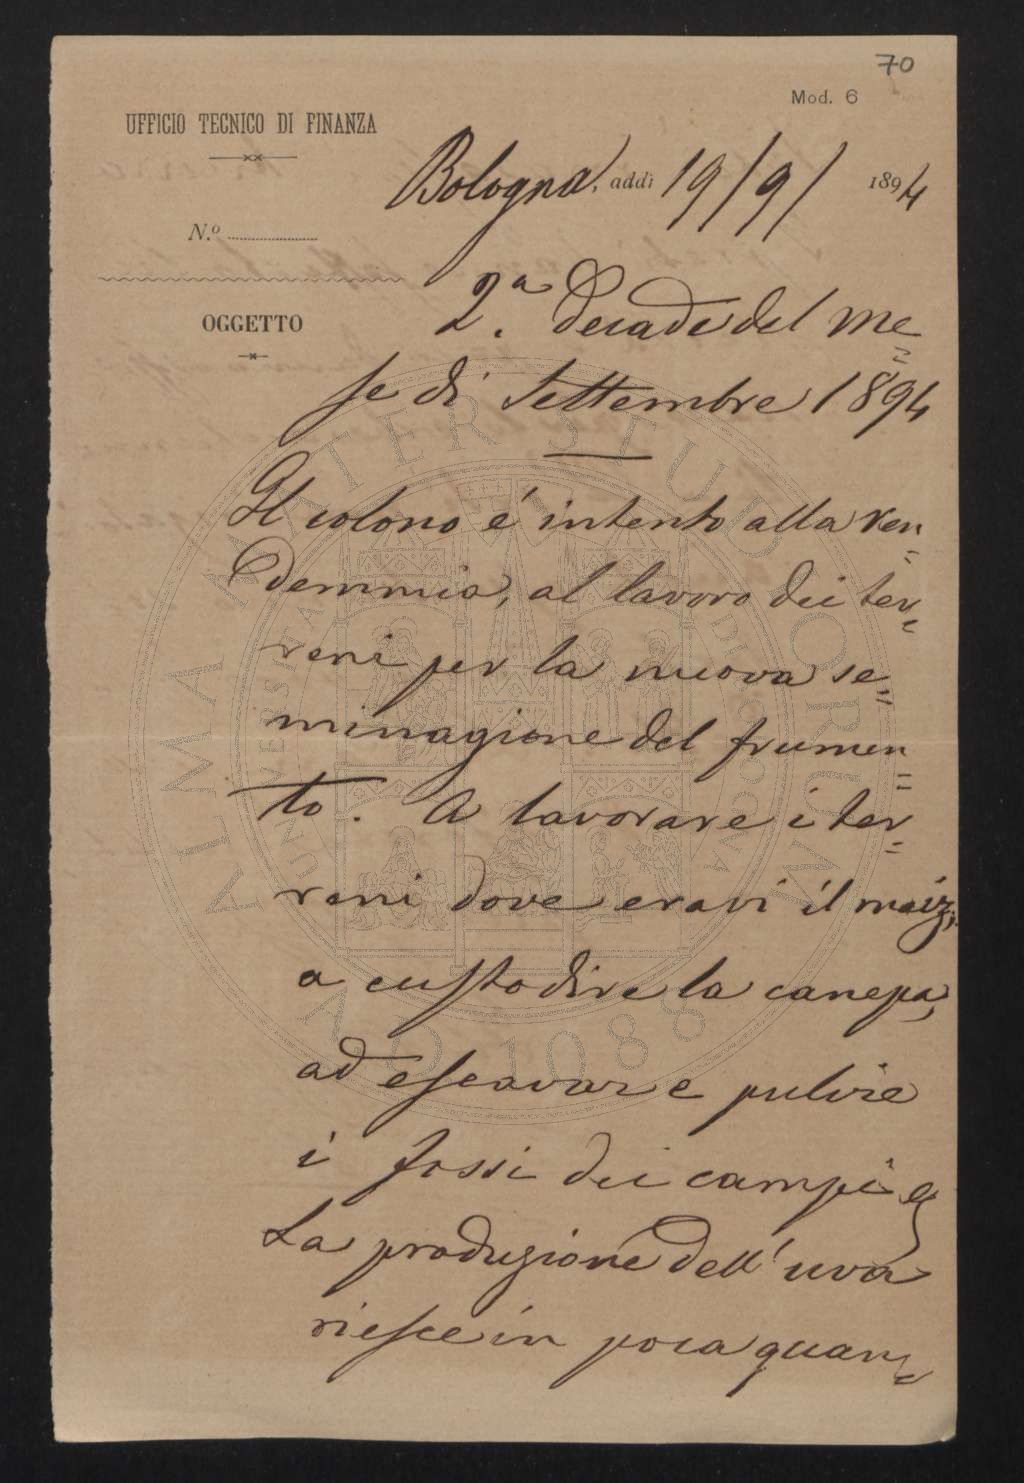 70
Mod. 6
UFFICIO TECNICO DI FINANZA
Bologna, addì 19/9/ 1894
N.º
2.ª Decade del me=
OGGETTO
se di Settembre 1894
Il colono é intento alla ven=
demmia, al lavoro dei ter=
reni per la nuova se=
minagione del frumen=
to. A lavorare i ter=
reni dove eravi il maiz,
a custodire la canepa,
ad escavare e pulire
i fossi dei campi &
La produzione dell'uva
riesce in poca quan=
ALMA MATER STUDIORUM
UNIVERSITÀ DI BOLOGNA
A.D. 1088